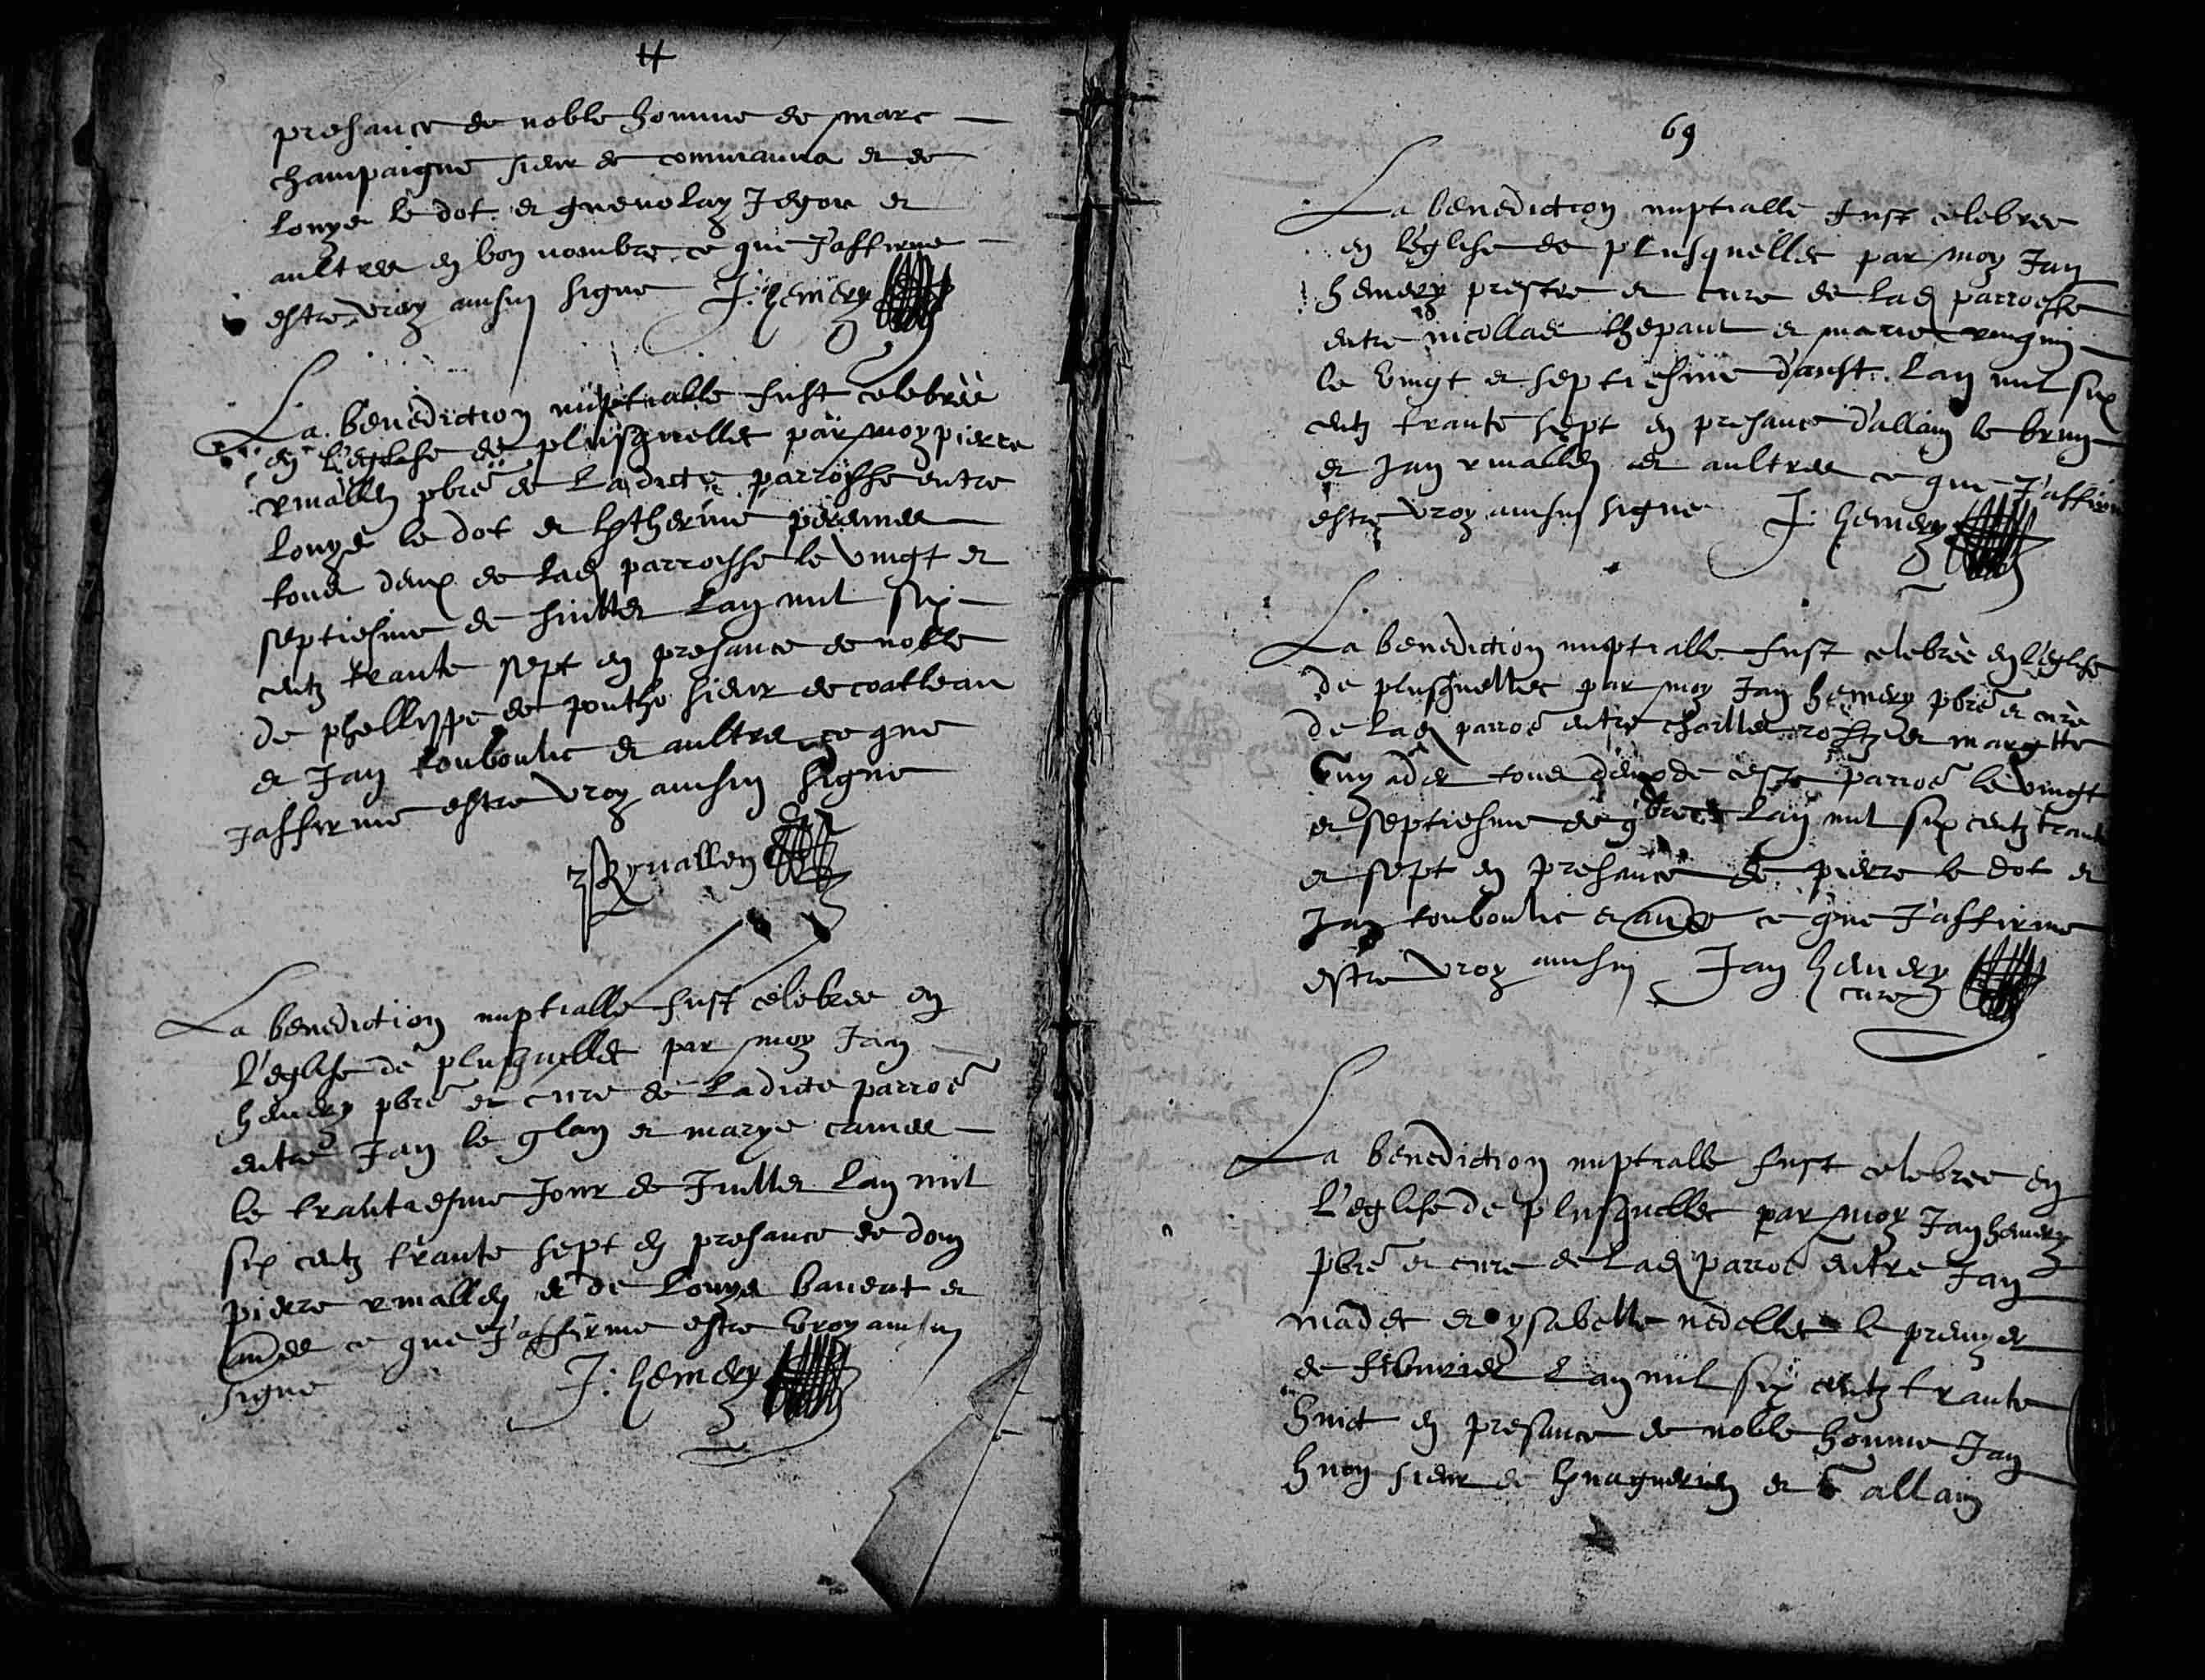 presance de noble homme de marc
champaigne sieur de commanna et de
Louys le dot et guenolay Jegou et
aultres en bon nombre ce que J'affirme
estre vroy ainsin signe J: hemery
La benediction nuptialle fust celebrèè
en l'eglise de plusquellec par moy pierre
pbrē de Ladicte parroisse entre
Louys le dot et
tous deux de Lad parroisse le vingt et
septiesme de Juillet Lan mil six
centz trante sept en presance de noble
de phellippe de ponthо sieur de coatleau
et Jan touboulic et aultres ce que
Jaffirme estre vroy ainsin signe
La benediction nuptialle fust celebree en
l'eglise de plusquellec par moy Jan
hemery pbrē et cure de Ladicte parroē
entre Jan le glan et marye
le trantiesme Jour de Juillet Lan mil
six centz trante sept en presance de dom
pierre et de Louys et
ce que J'affirme estre vroy ainsin
signe J: hemery
69
La benediction nuptialle fust celebree
en l'eglise de plusquellec par moy Jan
hemery prestre et cure de Lad parroesse
entre nicollas thepaut et marie
le vingt et septiesme d'aust Lan mil six
centz trante sept en presance d'allain le brun
et Jan et aultres ce que J'affirme
estre vroy ainsin signe J: hemery
La benediction nuptialle fust celebrèe en l'eglise
de plusquellec par moy Jan hemery pbrē et cure
de Lad parroē entre charlles et margtte
tous deux de ceste parroē le vingt
et septiesme de Lan mil six centz trante
et sept en presance de pierre le dot et
Jan touboulic et ce que J'affirme
estre vroy ainsin Jan hemery
cure
La benediction nuptialle fust celebree en
L'eglise de plusquellec par moy Jan hemery
pbrē et cure de Lad parroē entre Jan
madec et ysabelle nedellec le premyer
de Lan mil six centz trante
huict en presance de noble homme Jan
huon sieur de et allain